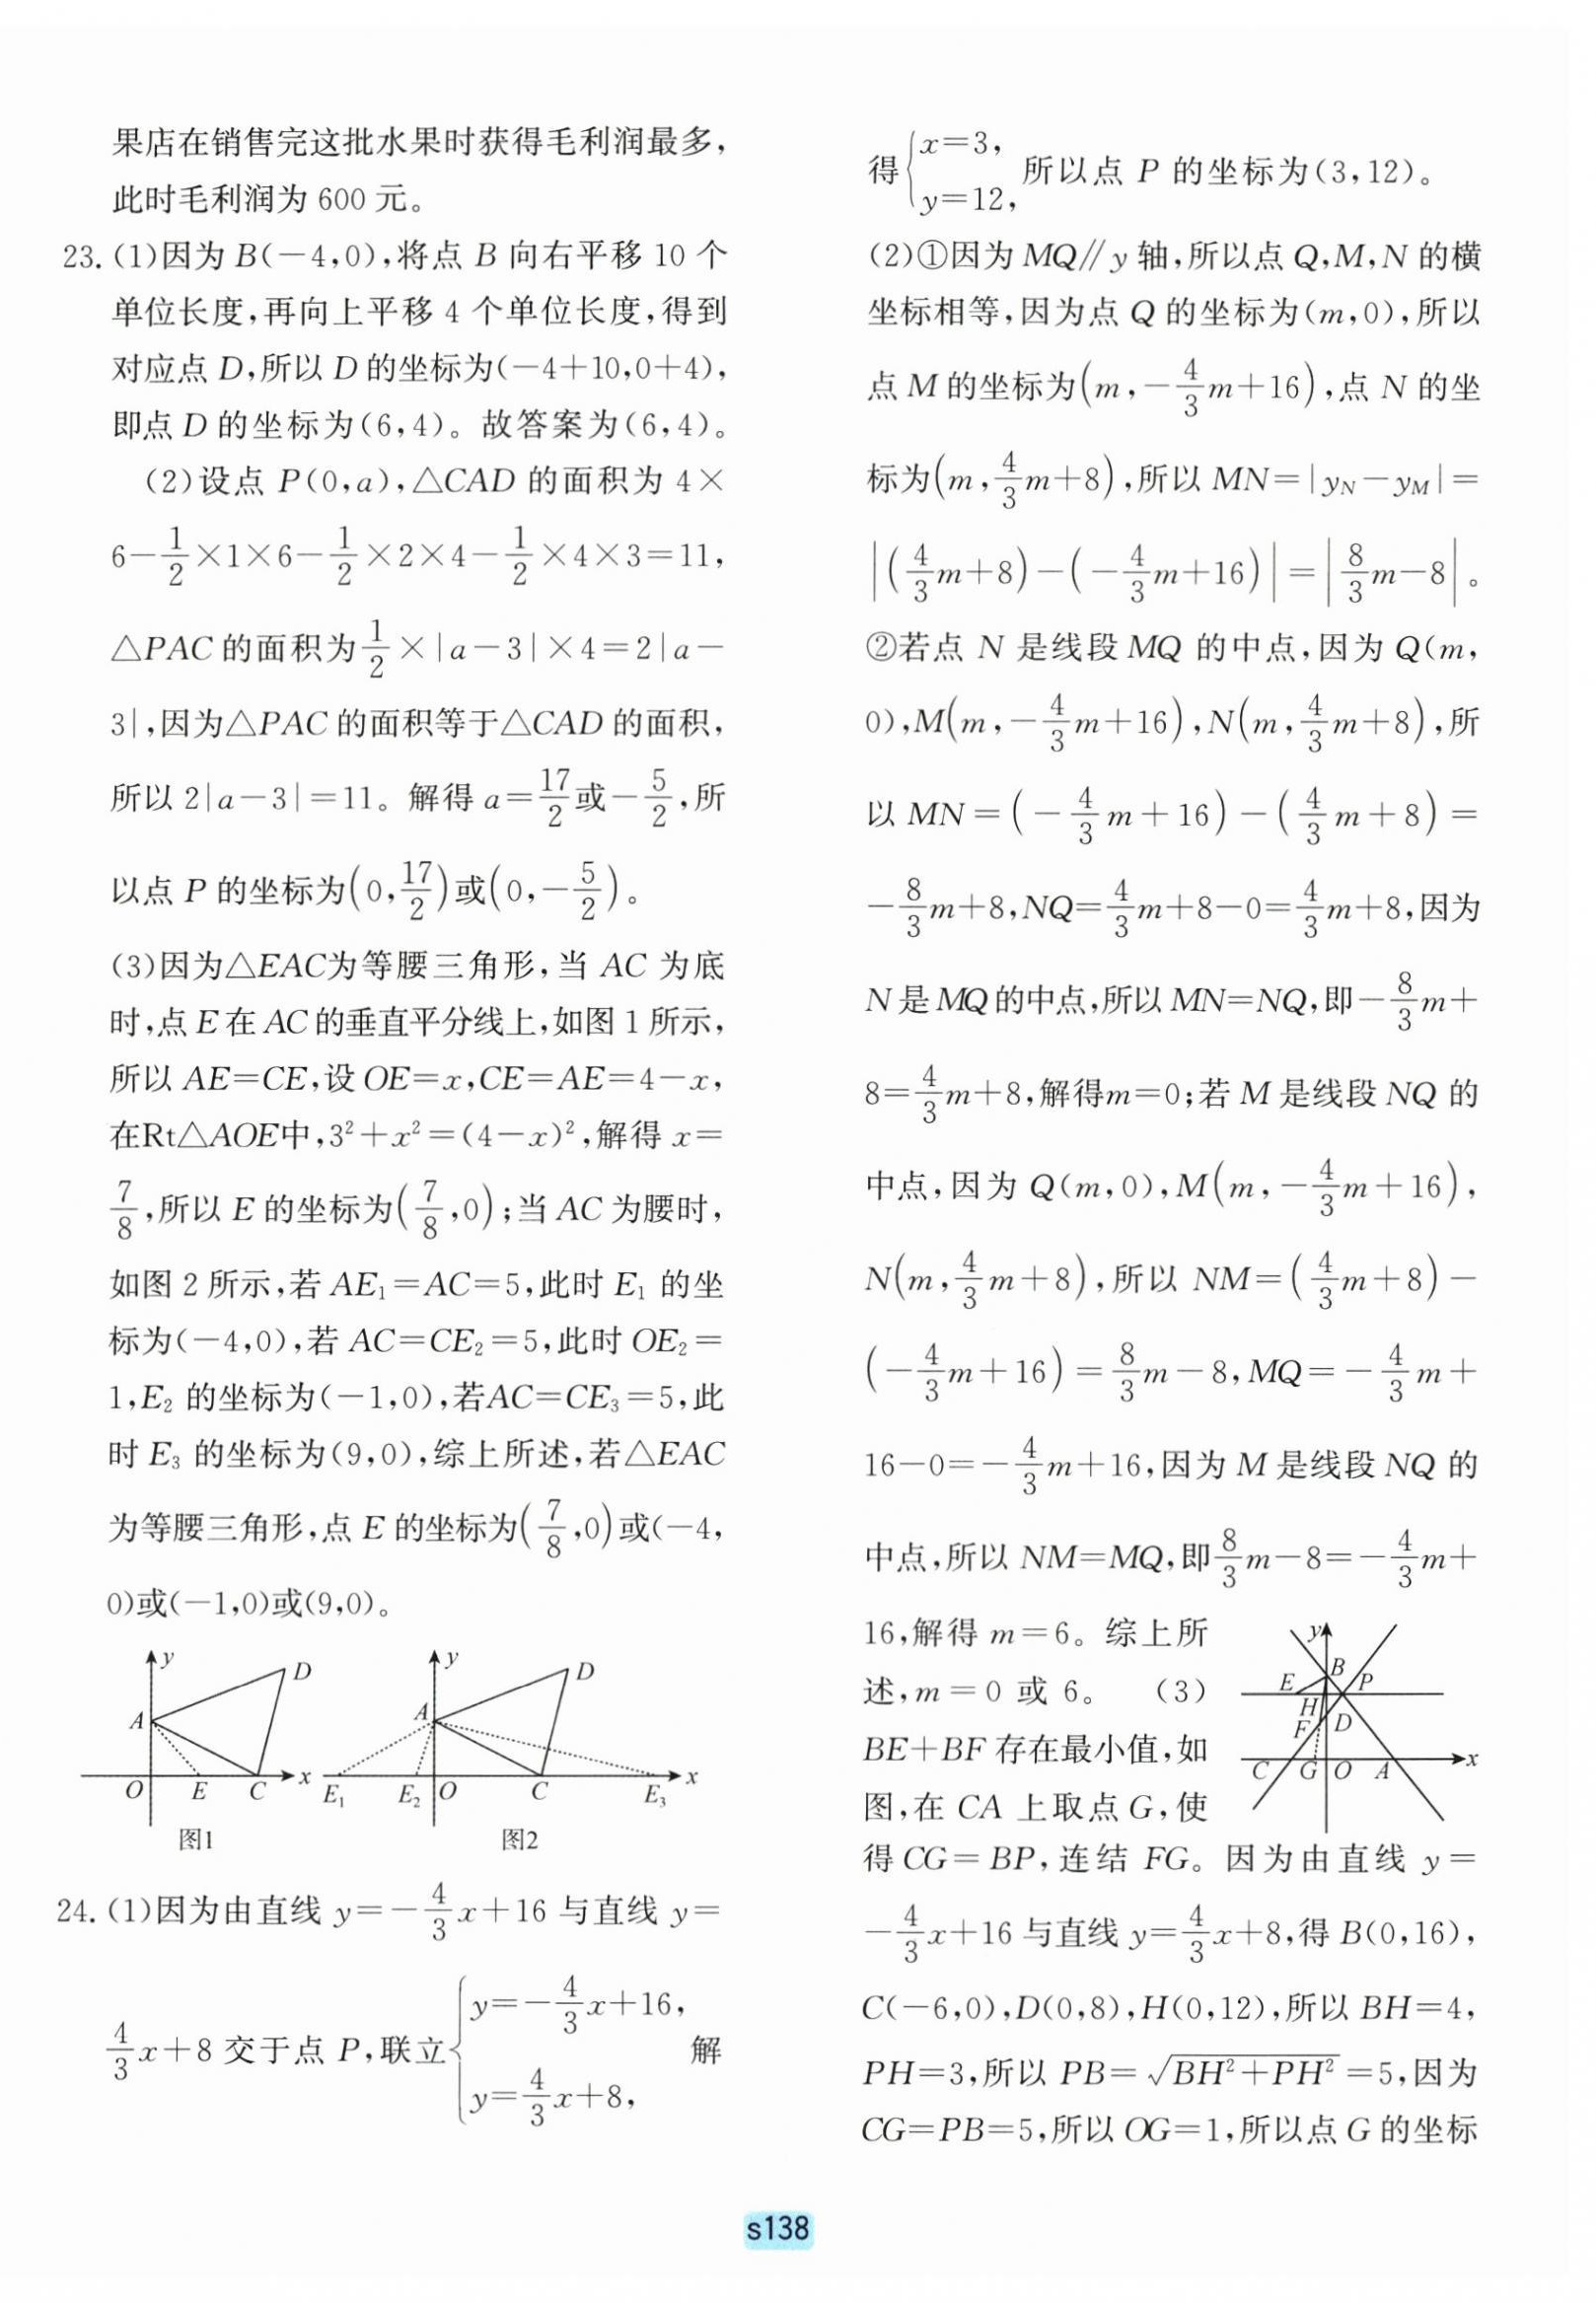 果店在销售完这批水果时获得毛利润最多,
此时毛利润为 600 元。
23. (1)因为 B(-4,0),将点 B 向右平移 10 个
单位长度,再向上平移 4 个单位长度,得到
对应点 D,所以 D 的坐标为(-4+10,0+4),
即点 D 的坐标为(6,4)。故答案为(6,4)。
(2)设点 P(0,a),△CAD 的面积为 4×
6-\frac{1}{2}×1×6-\frac{1}{2}×2×4-\frac{1}{2}×4×3=11,
△PAC 的面积为\frac{1}{2}×|a-3|×4=2|a-
3|,因为△PAC 的面积等于△CAD 的面积,
所以 2|a-3|=11。解得 a=\frac{17}{2}或-\frac{5}{2},所
以点 P 的坐标为(0,\frac{17}{2})或(0,-\frac{5}{2})。
(3)因为△EAC为等腰三角形,当 AC 为底
时,点 E 在 AC 的垂直平分线上,如图 1 所示,
所以 AE=CE,设 OE=x,CE=AE=4-x,
在Rt△AOE中,3²+x²=(4-x)²,解得 x=
\frac{7}{8},所以 E 的坐标为(\frac{7}{8},0);当 AC 为腰时,
如图 2 所示,若 AE₁=AC=5,此时 E₁ 的坐
标为(-4,0),若 AC=CE₂=5,此时 OE₂=
1,E₂ 的坐标为(-1,0),若AC=CE₃=5,此
时 E₃ 的坐标为(9,0),综上所述,若△EAC
为等腰三角形,点 E 的坐标为(\frac{7}{8},0)或(-4,
0)或(-1,0)或(9,0)。
y
D
A
O
E
C
x
图1
y
D
A
E₁
E₂
O
C
E₃
x
图2
24. (1)因为由直线 y=-\frac{4}{3}x+16 与直线 y=
\frac{4}{3}x+8 交于点 P,联立{y=-\frac{4}{3}x+16, y=\frac{4}{3}x+8, 解
得{x=3, y=12, 所以点 P 的坐标为(3,12)。
(2)①因为 MQ∥y 轴,所以点 Q,M,N 的横
坐标相等,因为点 Q 的坐标为(m,0),所以
点 M 的坐标为(m,-\frac{4}{3}m+16),点 N 的坐
标为(m,\frac{4}{3}m+8),所以 MN=|y_N-y_M|=
|(\frac{4}{3}m+8)-(-\frac{4}{3}m+16)|=|\frac{8}{3}m-8|。
②若点 N 是线段 MQ 的中点,因为 Q(m,
0),M(m,-\frac{4}{3}m+16),N(m,\frac{4}{3}m+8),所
以 MN=(-\frac{4}{3}m+16)-(\frac{4}{3}m+8)=
-\frac{8}{3}m+8,NQ=\frac{4}{3}m+8-0=\frac{4}{3}m+8,因为
N 是 MQ 的中点,所以 MN=NQ,即-\frac{8}{3}m+
8=\frac{4}{3}m+8,解得m=0;若 M 是线段 NQ 的
中点,因为 Q(m,0),M(m,-\frac{4}{3}m+16),
N(m,\frac{4}{3}m+8),所以 NM=(\frac{4}{3}m+8)-
(-\frac{4}{3}m+16)=\frac{8}{3}m-8,MQ=-\frac{4}{3}m+
16-0=-\frac{4}{3}m+16,因为 M 是线段 NQ 的
中点,所以 NM=MQ,即\frac{8}{3}m-8=-\frac{4}{3}m+
16,解得 m=6。综上所
述,m=0 或 6。 (3)
BE+BF 存在最小值,如
图,在 CA 上取点 G,使
y
B
E
P
H
F
D
C
G
O
A
x
得 CG=BP,连结 FG。因为由直线 y=
-\frac{4}{3}x+16 与直线 y=\frac{4}{3}x+8,得 B(0,16),
C(-6,0),D(0,8),H(0,12),所以 BH=4,
PH=3,所以 PB=√(BH²+PH²)=5,因为
CG=PB=5,所以 OG=1,所以点 G 的坐标
s138